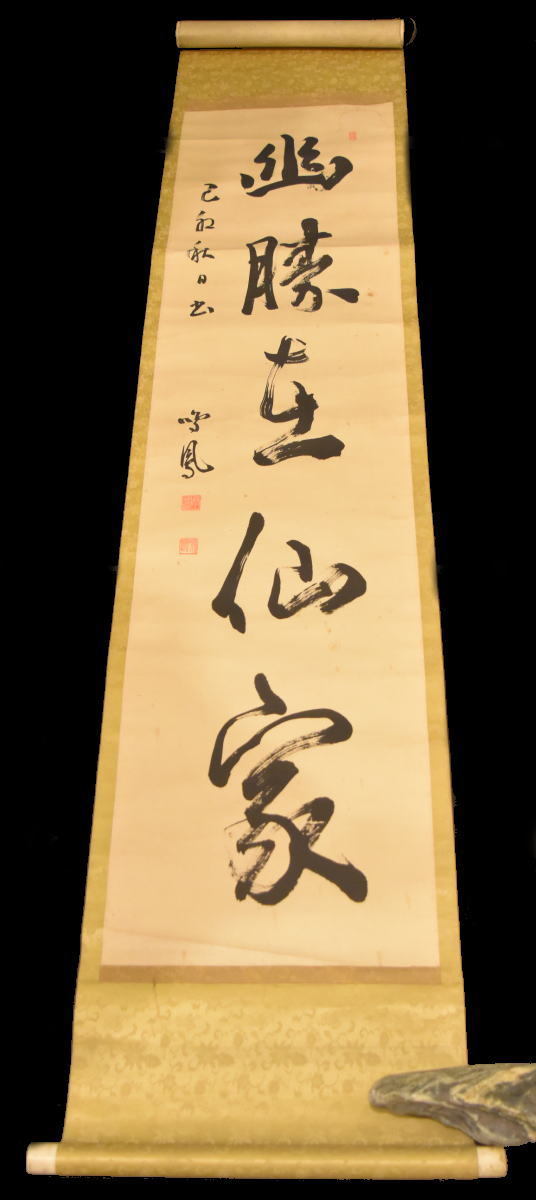 幽勝在仙家
己酉秋日書 鳴鳳